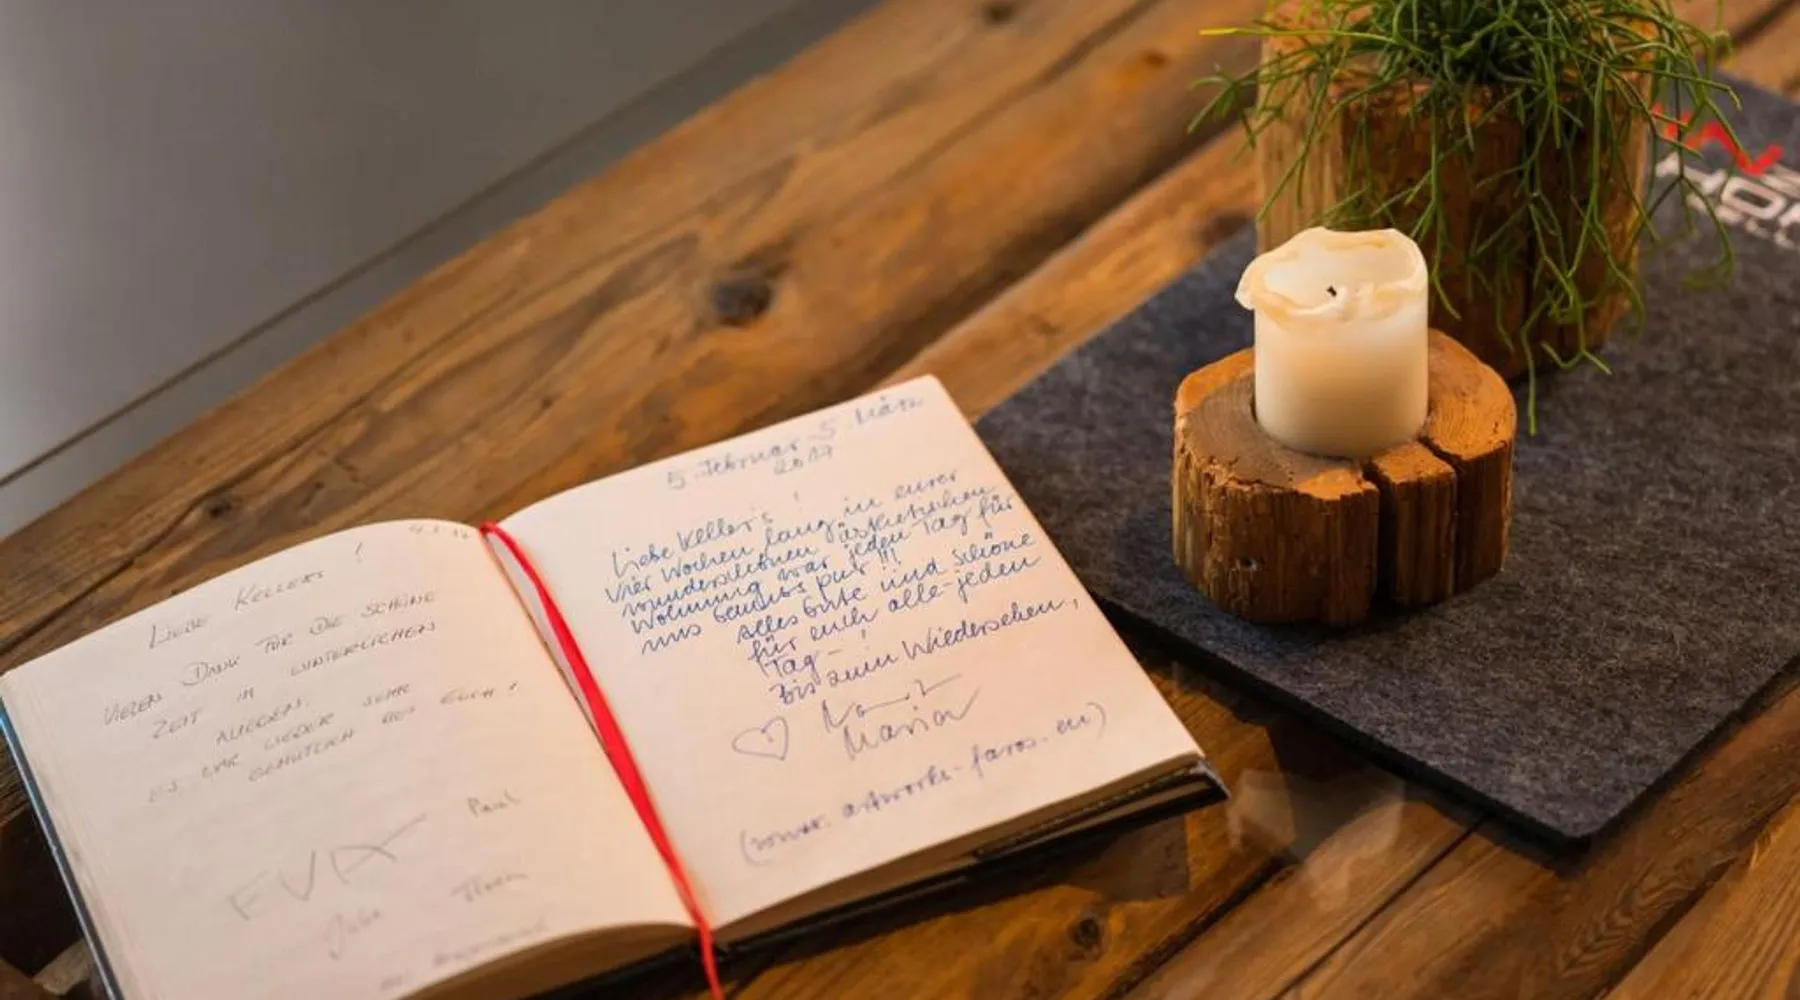 LIEBE KELLERS !
VIELEN DANK FÜR DIE SCHÖNE
ZEIT IM WINTERLICHEN
ALLIEDEN.
ES WAR WIEDER SEHR
GEMÜTLICH BEI EUCH!
Paul
EVA
Julia
5. Februar - 5. März
2017
Liebe Keller's !
Vier Wochen lang in eurer
wunderschönen ästhetischen
Wohnung war jeden Tag für
uns Genuss pur !!!
Alles Gute und schöne
für euch alle - jeden
Tag - !
Bis zum Wiedersehen,
Maria
artworks-faros.eu)
HO